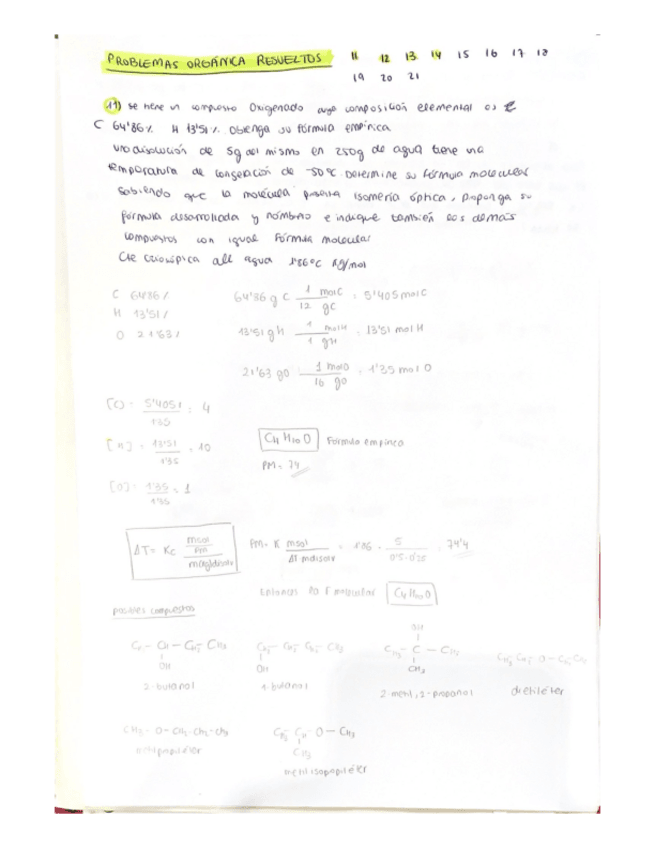 PROBLEMAS ORGÁNICA RESUELTOS 11 12 13 14 15 16 17 18
19 20 21
11) Se tiene un compuesto Oxigenado cuya composición elemental es
C 64'86% H 13'51%. Obtenga su fórmula empírica
una disolución de 5g del mismo en 250g de agua tiene una
temperatura de congelación de -'50ºC. Determine su fórmula molecular
Sabiendo que la molécula presenta isomería óptica, proponga su
fórmula desarrollada y nómbrelo e indique también los demás
compuestos con igual fórmula molecular
Cte crioscópica del agua 1'86ºC Kg/mol
C 64'86%
H 13'51%
O 21'63%
64'86 g C 1 mol C / 12 g C = 5'405 mol C
13'51 g H 1 mol H / 1 g H = 13'51 mol H
21'63 g O 1 mol O / 16 g O = 1'35 mol O
[C] = 5'405 / 1'35 = 4
[H] = 13'51 / 1'35 = 10
[O] = 1'35 / 1'35 = 1
C4H10O Fórmula empírica
PM = 74
ΔT = Kc msol / PM / mkgdisolvte
PM = K msol / ΔT·mdisolv = 1'86 · 5 / 0'5·0'25 = 74'4
Entonces la F molecular C4H10O
posibles compuestos
CH3 - CH - CH2 - CH3
OH
2-butanol
CH2 - CH2 - CH2 - CH3
OH
1-butanol
OH
CH3 - C - CH3
CH3
2 metil, 2-propanol
CH3 CH2 - O - CH2 CH3
dietiléter
CH3 - O - CH2 - CH2 - CH3
metilpropiléter
CH3 - CH - O - CH3
CH3
metilisopropiléter